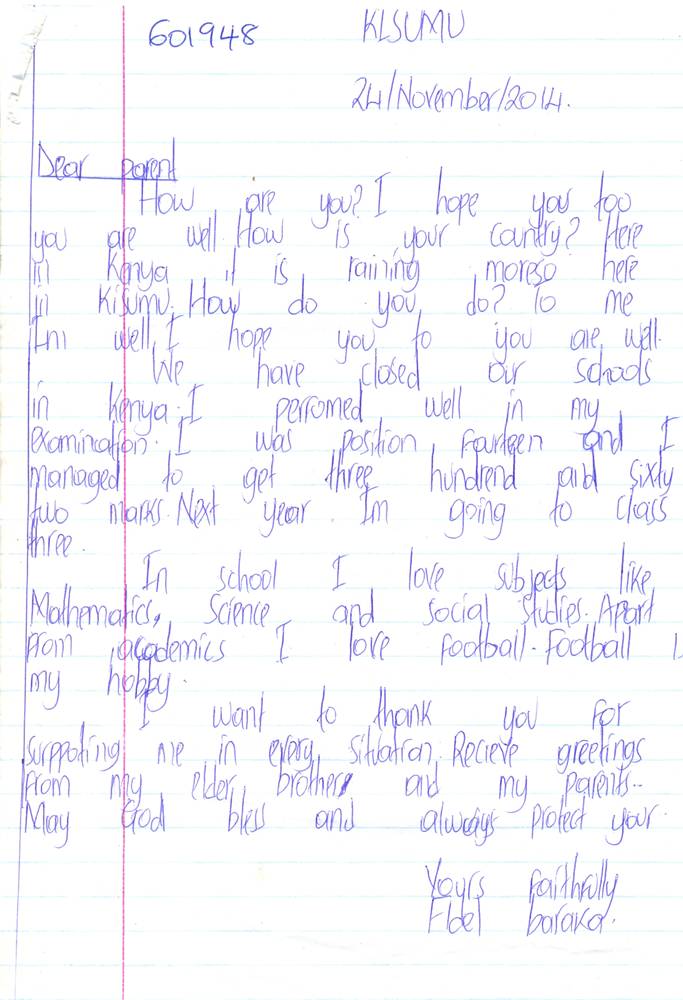 601948 KISUMU
24/November/2014.
Dear parent
How are you? I hope you too
you are well. How is your country? Here
in Kenya it is raining moreso here
in Kisumu. How do you do? To me
Im well, I hope you to you are well.
We have closed our schools
in Kenya. I perromed well in my
examination. I was position fourteen and I
managed to get three hundrend and sixty
two marks. Next year Im going to class
three.
In school I love subjects like
Mathematics, science and social studies. Apart
from academics I love football. Football i
my hobby.
I want to thank you for
surppoting me in every situation. Recieve greetings
from my elder brother and my parents.
May God bless and always protect your.
Yours faithfully
Fidel baraka.